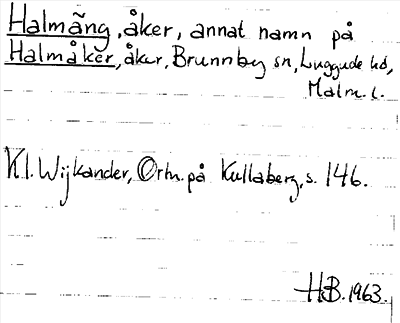 Halmäng, åker, annat namn på
Halmåker, åker, Brunnby sn, Luggude hd,
Malm. l.
K.I. Wijkander, Ortn. på Kullaberg, s. 146.
H.B. 1963.